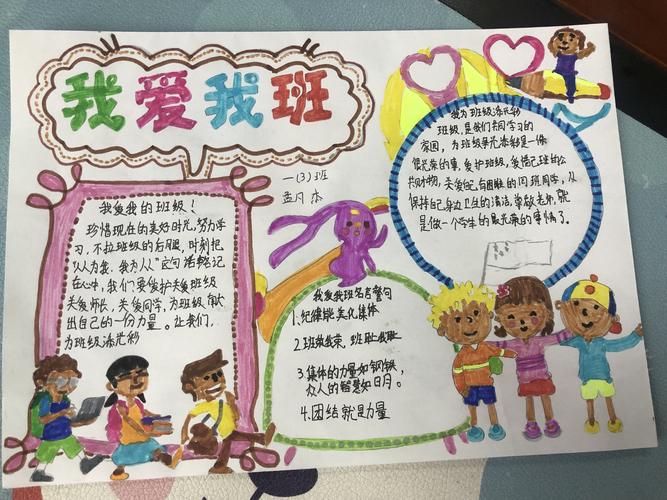 我爱我班
一(3)班
孟凡杰
我爱我的班级!
珍惜现在的美好时光,努力学
习,不拉班级的后腿,时刻把
"人人为我,我为人人"这句话熟记
在心中,我们要爱护关爱班级
关爱师长,关爱同学,为班级献
出自己的一份力量。让我们,
为班级添光彩
我为班级添光彩
班级,是我们共同学习的
家园,为班级争光添彩是一件
很光荣的事,爱护班级,爱惜班级的公
共财物,关爱有困难的同班同学,
保持自己身边卫生的清洁,尊敬老师,就
是做一个学生的最光荣的事情了。
我爱我班名言警句
1、纪律能美化集体
2、班荣我荣,班耻我耻
3、集体的力量如钢铁,
众人的智慧如日月。
4、团结就是力量